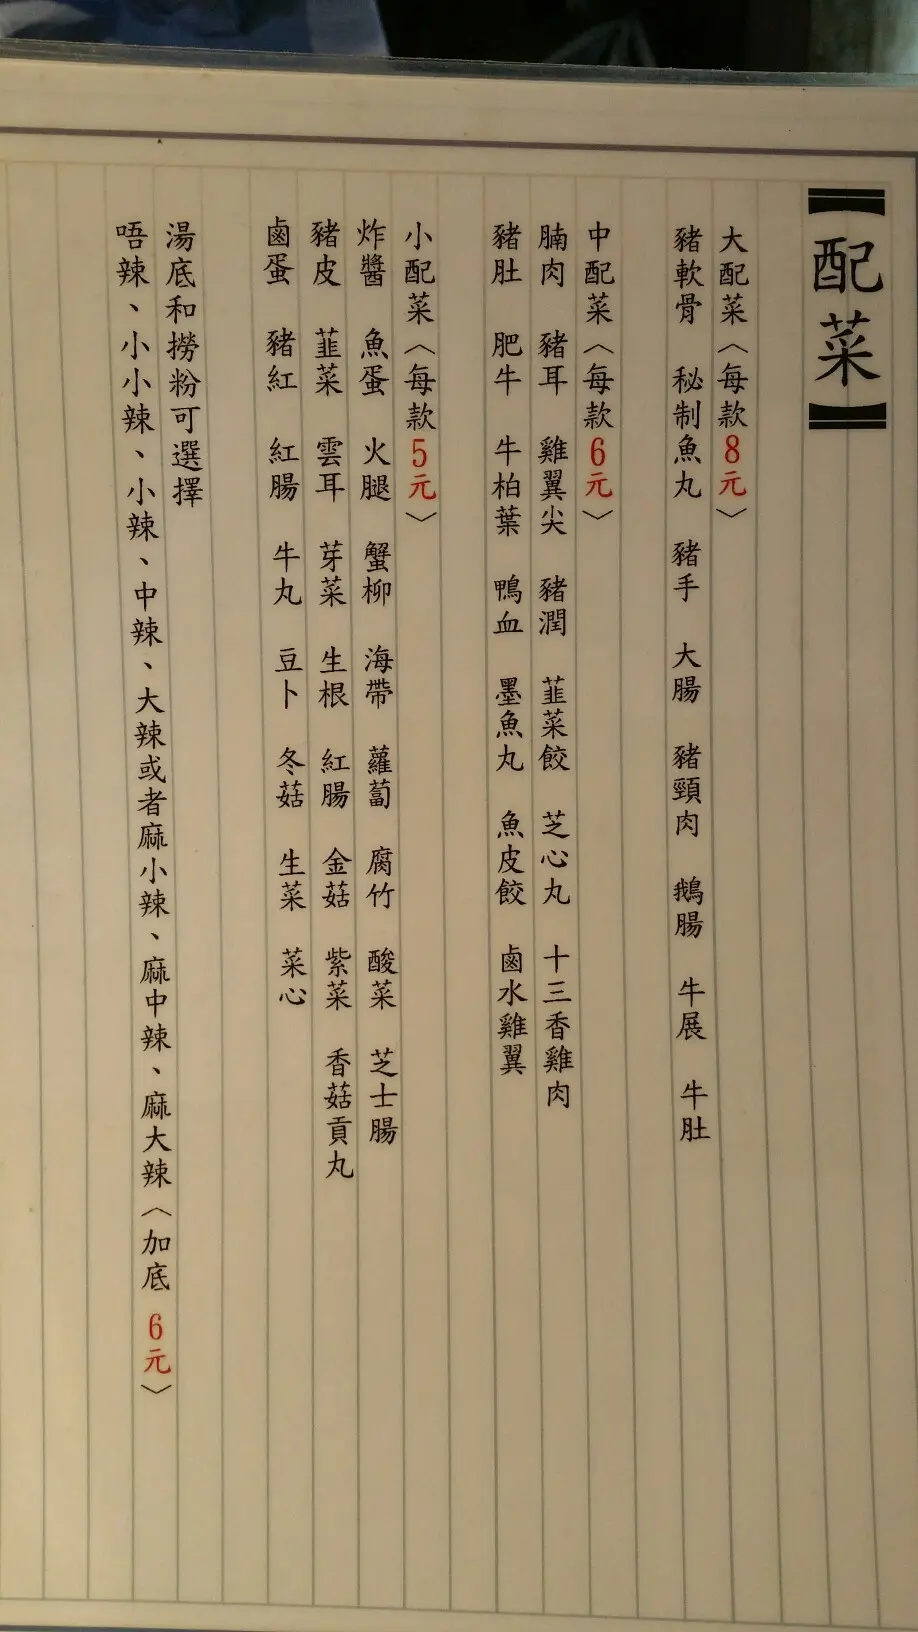 【配菜】
大配菜〈每款8元〉
豬軟骨 秘制魚丸 豬手 大腸 豬頸肉 鵝腸 牛展 牛肚
中配菜〈每款6元〉
腩肉 豬耳 雞翼尖 豬潤 韮菜餃 芝心丸 十三香雞肉
豬肚 肥牛 牛柏葉 鴨血 墨魚丸 魚皮餃 鹵水雞翼
小配菜〈每款5元〉
炸醬 魚蛋 火腿 蟹柳 海帶 蘿蔔 腐竹 酸菜 芝士腸
豬皮 韮菜 雲耳 芽菜 生根 紅腸 金菇 紫菜 香菇貢丸
鹵蛋 豬紅 紅腸 牛丸 豆卜 冬菇 生菜 菜心
湯底和撈粉可選擇
唔辣、小小辣、小辣、中辣、大辣或者麻小辣、麻中辣、麻大辣〈加底 6元〉